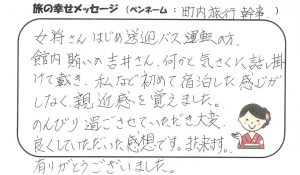 旅の幸せメッセージ（ペンネーム：町内旅行幹事）
女将さんはじめ送迎バス運転の方、
館内賄いの吉井さん、何かと気さくに話し掛
けて戴き、私など初めて宿泊した感じが
しなく、親近感を覚えました。
のんびり過ごさせていただき大変
良くしていただいた感想です。又来ます。
有りがとうございました。